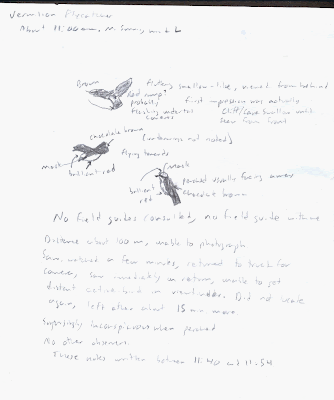 Vermilion Flycatcher
About 11:00 am,
Brown
flying swallow-like, viewed from behind
Red rump?
probably
flashing undertail
coverts
first impression was actually
Cliff/Cave Swallow until
seen from front
chocolate brown
(underwings not noted)
flying towards
mask
brilliant red
mask
brilliant
red
perched usually facing away
chocolate brown
No field guides consulted, no field guide with me
Distance about 100 m, unable to photograph
Saw, watched a few minutes, returned to truck for
camera, saw immediately on return, unable to get
distant active bird in viewfinder. Did not locate
again, left after about 15 min more.
Surprisingly inconspicuous when perched
No other observers.
These notes written between 11:40 and 11:54